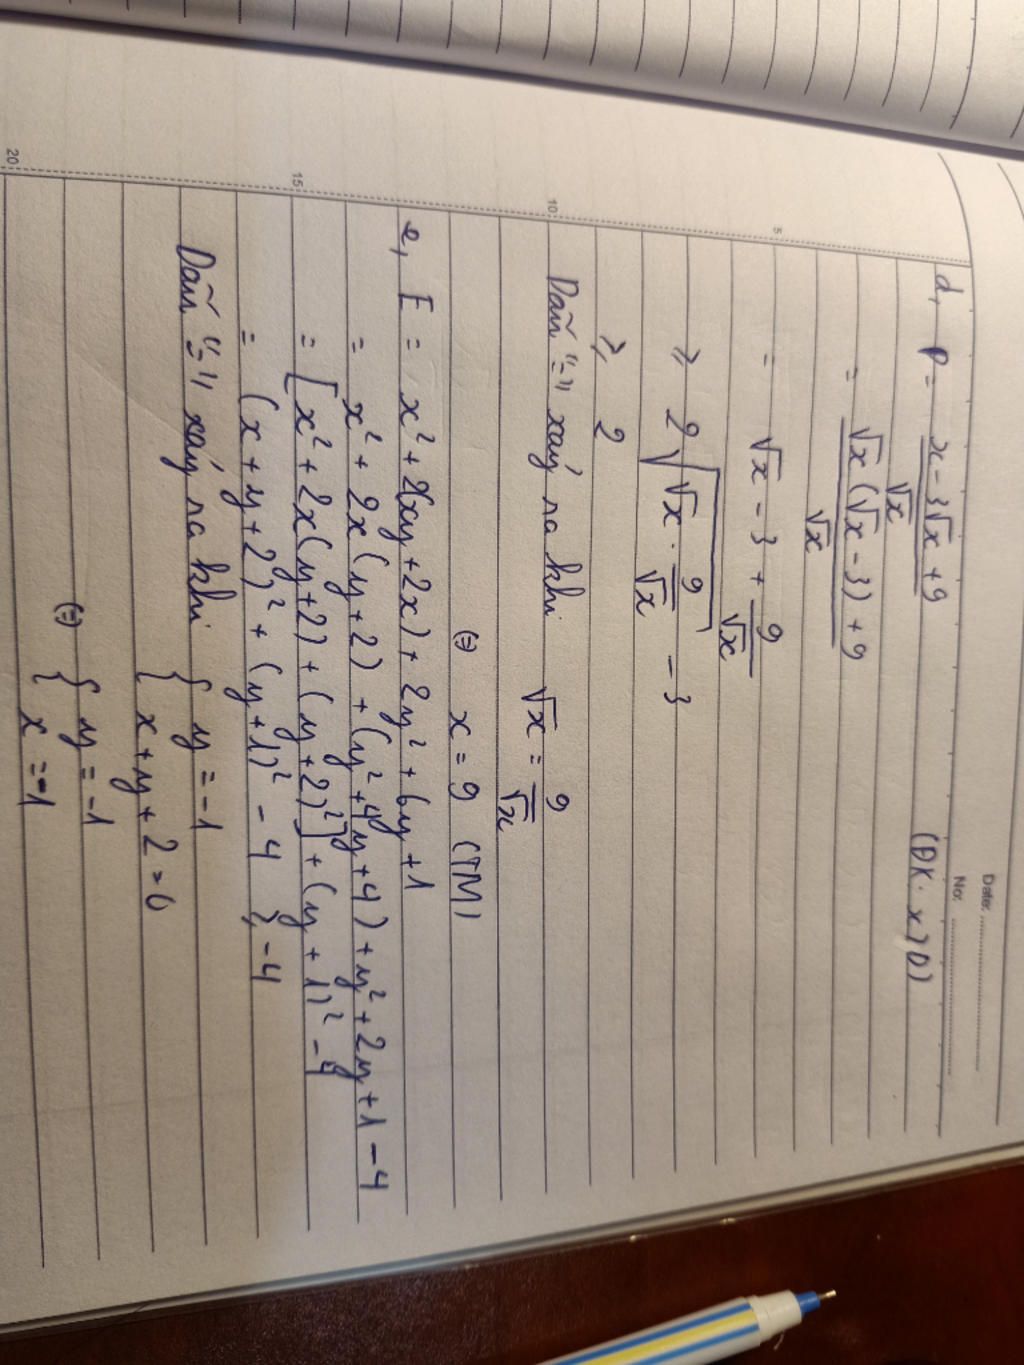 Date:
No:
d, P = \frac{x - 3\sqrt{x} + 9}{\sqrt{x}} (ĐK: x > 0)
= \frac{\sqrt{x}(\sqrt{x} - 3) + 9}{\sqrt{x}}
5
= \sqrt{x} - 3 + \frac{9}{\sqrt{x}}
≥ 2\sqrt{\sqrt{x} \cdot \frac{9}{\sqrt{x}}} - 3
≥ 2
10
Dấu "=" xảy ra khi \sqrt{x} = \frac{9}{\sqrt{x}}
⇔ x = 9 (TM)
e, E = x² + 2(xy + 2x) + 2y² + 6y + 1
= x² + 2x(y + 2) + (y² + 4y + 4) + y² + 2y + 1 - 4
15
= [x² + 2x(y + 2) + (y + 2)²] + (y + 1)² - 4
= (x + y + 2)² + (y + 1)² - 4 ≥ -4
Dấu "=" xảy ra khi { y = -1
{ x + y + 2 = 0
⇔ { y = -1
20
{ x = -1